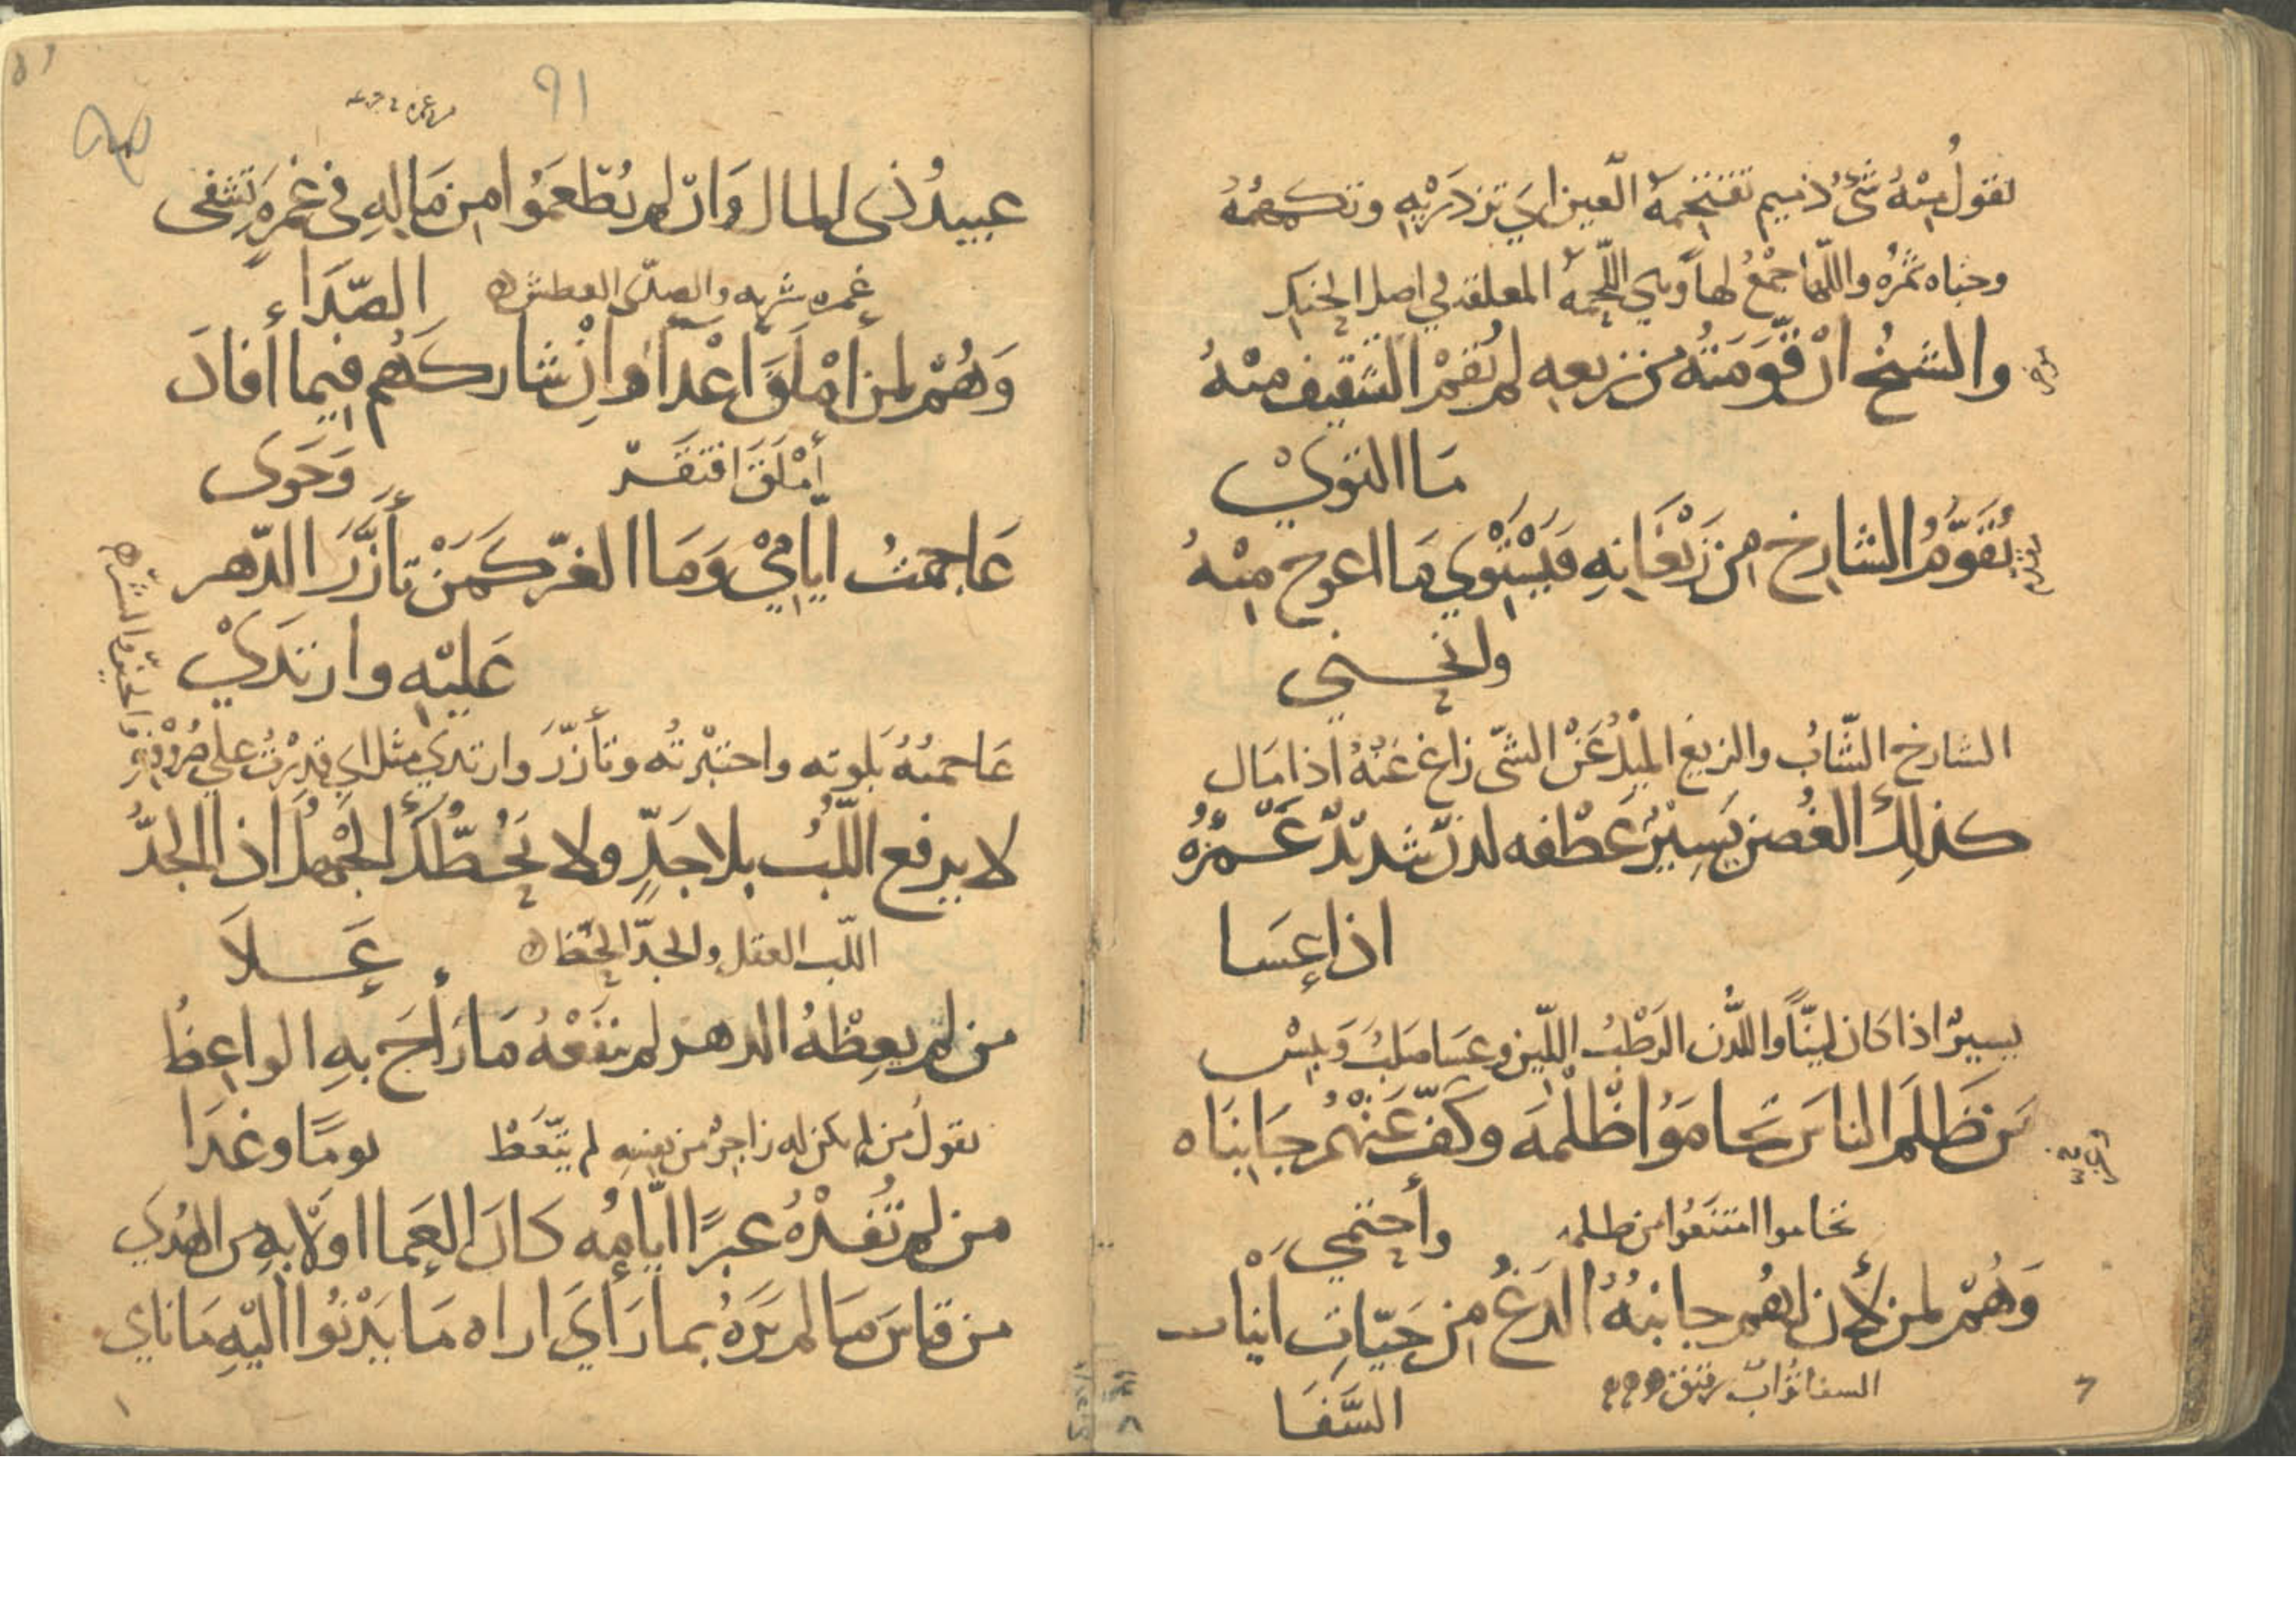 تقول منه شئ ذنيم تقتحمه العين اي تزدريه وتكرهه
وجناه ثمره واللّها جمع لهاة وهي اللّحمة المعلقة في اصل الحنك
والشيخ ان قوّمته من زيعه لم يُقم التثقيف منهُ
مَا التويْ
يُقوّمُ الشارخ من زيَغَانِهِ فَيَسْتَوي مَا اعوج مِنْهُ
وانحنى
الشارخ الشّابُ والزيغ الميْلُ عَنْ الشّئ زاغ عَنْهُ اذا مَال
كذلِك الغُصن يَسِيْرٌ عَطْفه لدنّ شديدٌ غَمْزُهُ
اذا عسَا
يسيرٌ اذا كان ليّنًا واللّدن الرَطْبُ اللّين وعسَا صَلبُ وَيبِسْ
مَن ظَلَم الناسَ تحَامَوْا ظُلْمَه وكَفّ عَنْهُمْ جَانبَاه
تحاموا امتنَعُوا من ظلمه
وأحتمي
وَهُمْ لمن لأن لهُم جانبُهُ الدَغُ مِن حَيّاتِ انْيَاب
السفا تُرابٌ رقيق
السَّفَا
91
عبيدُ ذى المال وَان لم يُطْعمَوُا مِن مَالِهِ فى غمرَةٍ تَشفى
غمره شربه والصدَى العطش
الصَّدَاء
وَهُمْ لمن أمْلَقَ اعْدَآ وانْ شاركَهُم فيما أفادَ
أمْلَقَ افتَقَرْ
وَحَوَى
عَاجمتُ ايّامِيْ وَمَا الغرّ كَمَنْ تأزَّرَ الدّهر
عَليْهِ وارتدَيْ
عَاجمتهُ بَلوته واختبْرتُه وتأزّرَ وارتدي مثل اي قدِرْتُ على صُرُوْفِهِ
والخير والشرّ
لا يرفع اللّبُ بلا جَدٍّ ولا يَحُطُّكَ الجَهْلُ اذا الجدُّ
اللّب العقل والجدّ الحظ
عَـلاَ
من لم يعِظْهُ الدهر لم ينفَعْهُ مَا رَأحَ بهِ الواعِظُ
يقولُ من لم يكن له زاجرٌ من نفسِهِ لم يتّعَظْ
يومًا وغدَا
من لم تُفدْهُ عبرًا ايّامُه كانَ العَما اوْلا بهِ من الهُدَي
من قاسَ مَا لم يَرَهُ بما رَأيَ اراه مَا يَدْنُوا اليْهِ مَا نايَ